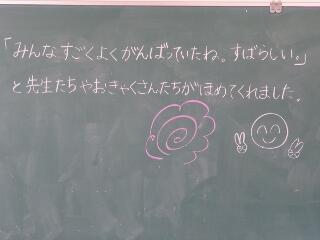 「みんなすごくよくがんばっていたね。すばらしい。」
と先生たちやおきゃくさんたちがほめてくれました。